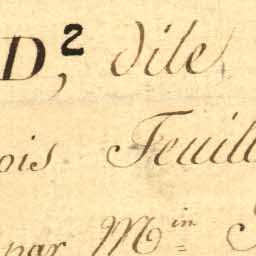 D,² dile
ois Feuill
par M^in